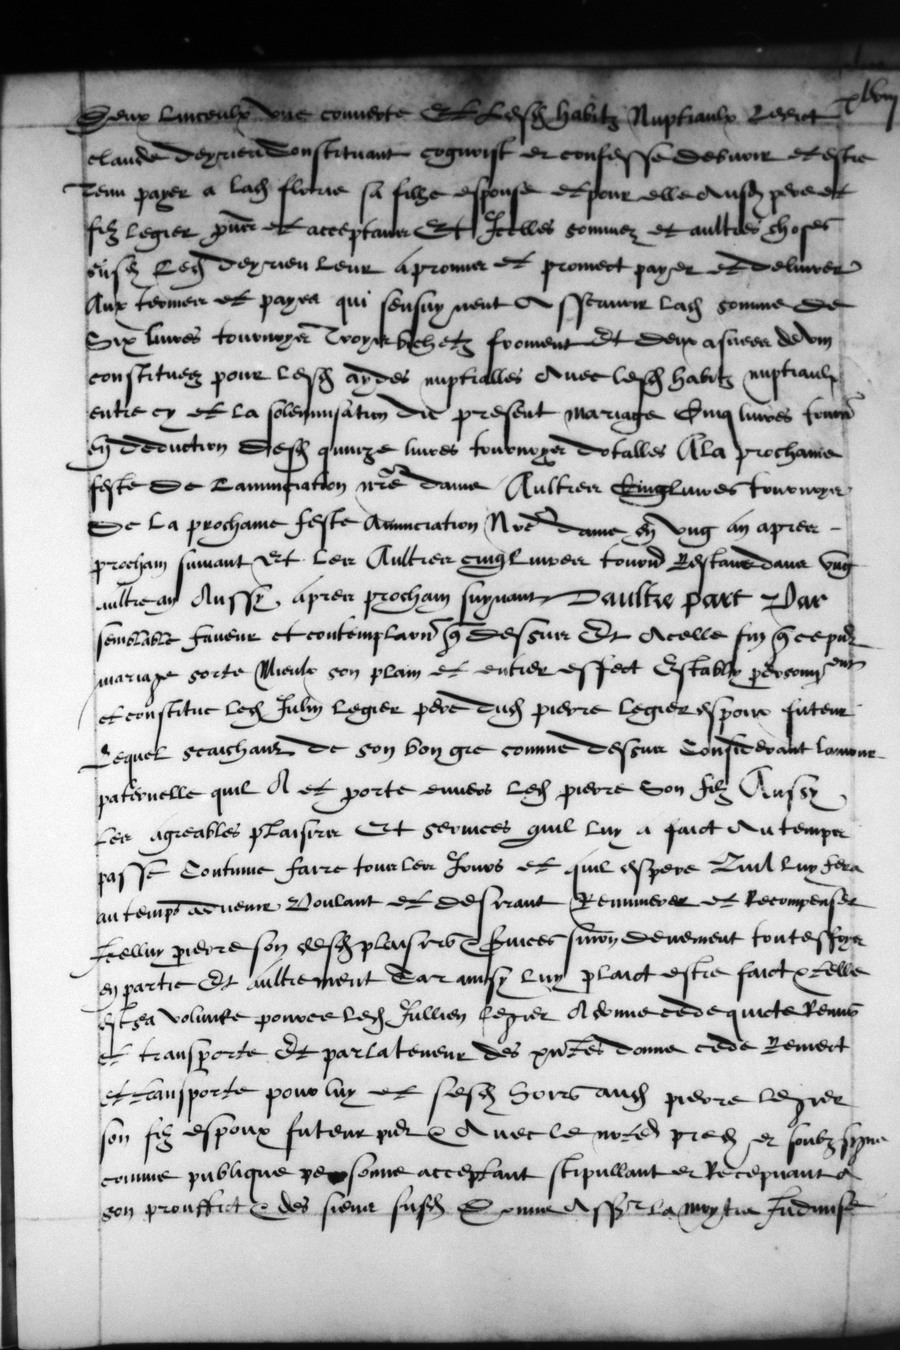 xlviij
Deux linceulx une couverte Et Lesd habitz Nuptiaulx Ledict
claude deyrieu Constituant cognoist et confesse debvoir et estre
Tenu payer a lad florie sa fille espouse et pour elle Ausd pere et
filz legier pnt et acceptant Et Icelles sommes et aultres choses
susd Led deyrieu leur a promis et promect payer et delivrer
Aux termes et payes qui sensuyvent A scavoir lad somme de
Six livres tournoys Troys bichetz froment Et deux asnees de vin
constituez pour lesd aydes nuptialles Avec lesd habitz nuptiaulx
entre cy et la solemnisation du present mariage Cinq livres tourn
En deduction Desd quinze livres tournoys dotalles A la prochaine
feste De Lannunciation nre dame Aultres Cinq livres tournoys
De La prochaine feste Annunciation Nre dame En ung an apres
prochain suivant Et les Aultres cinq livres tourn Restans dans ung
aultre an Aussy apres prochain suyvant Daultre part Par
semblable faveur et contemplaon q dessus Et Acelle fin q ce pnt
mariage sorte Mieulx son plain et entier effect Establly personn
et constitue led Julin legier pere dud pierre legier espoux futeur
Lequel scaichant de son bon gre comme dessus Considerant lamour
paternelle quil A et porte envers led pierre Son filz Aussy
Les agreables plaisirs Et services quil luy a faict Au temps
passe Continue faire tous les Jours et quil espere Quil luy fera
au temps advenir Voulant et desirant Remunerer et Recompenser
Icelluy pierre son desd plaisirs & services sinon deuement toutesfoys
en partie Et aultrement Car ainsy luy plaict estre faict & telle
est sa volunte pource led Jullien legier A donne cede quicte Remis
et transporte Et par la teneur des pntes donne cede Remect
et transporte pour luy et sesd hoirs aud pierre legier
son filz espoux futeur pnt & Avec le notere pred et soubz signe
comme publique personne acceptant stipullant et Recepvant a
son prouffict & des siens susd Donne Assr la moytie Indivise